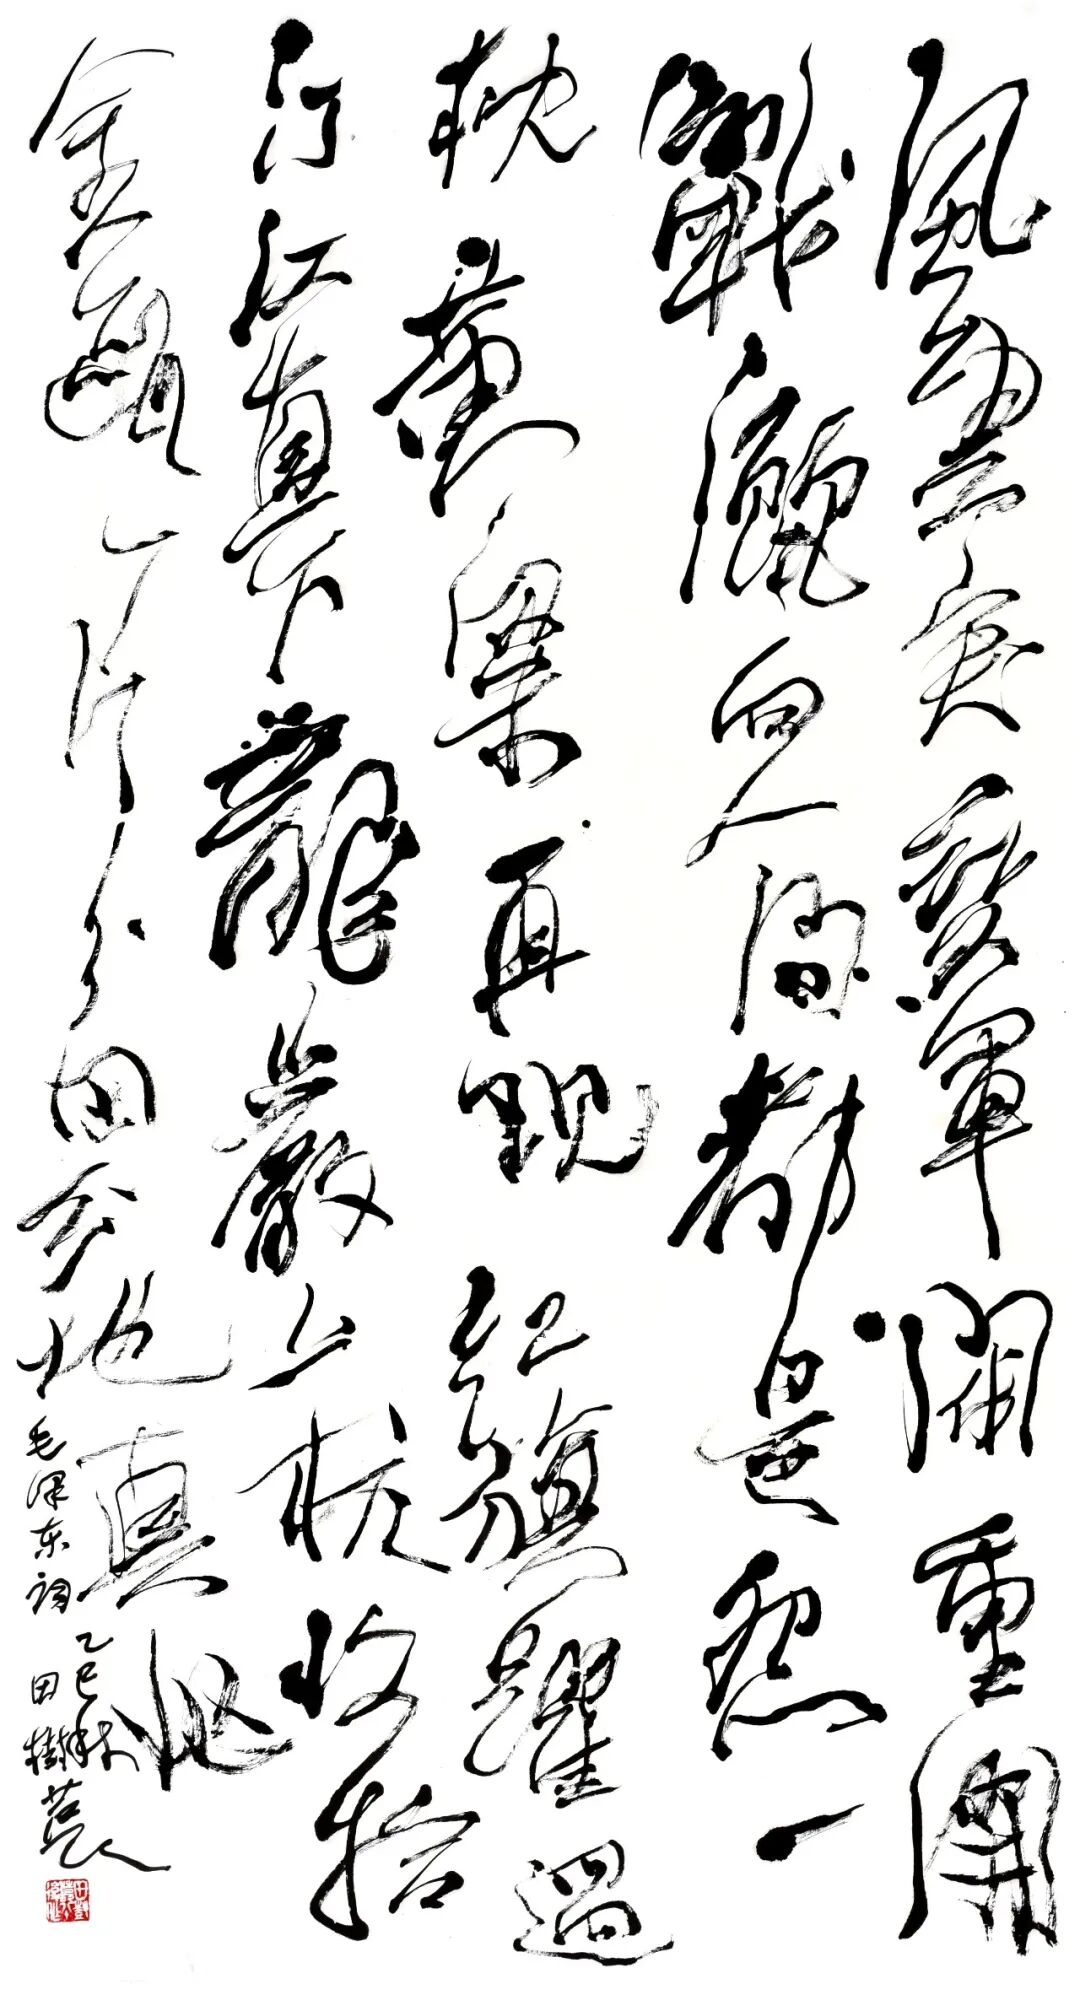 風雲突變軍閥重開
戰灑向人間都是怨一
枕黄粱再現紅旗躍過
汀江直下龍巖上杭收拾
金甌一片分田分地真忙
毛泽东詞
乙巳秋
田樹萇